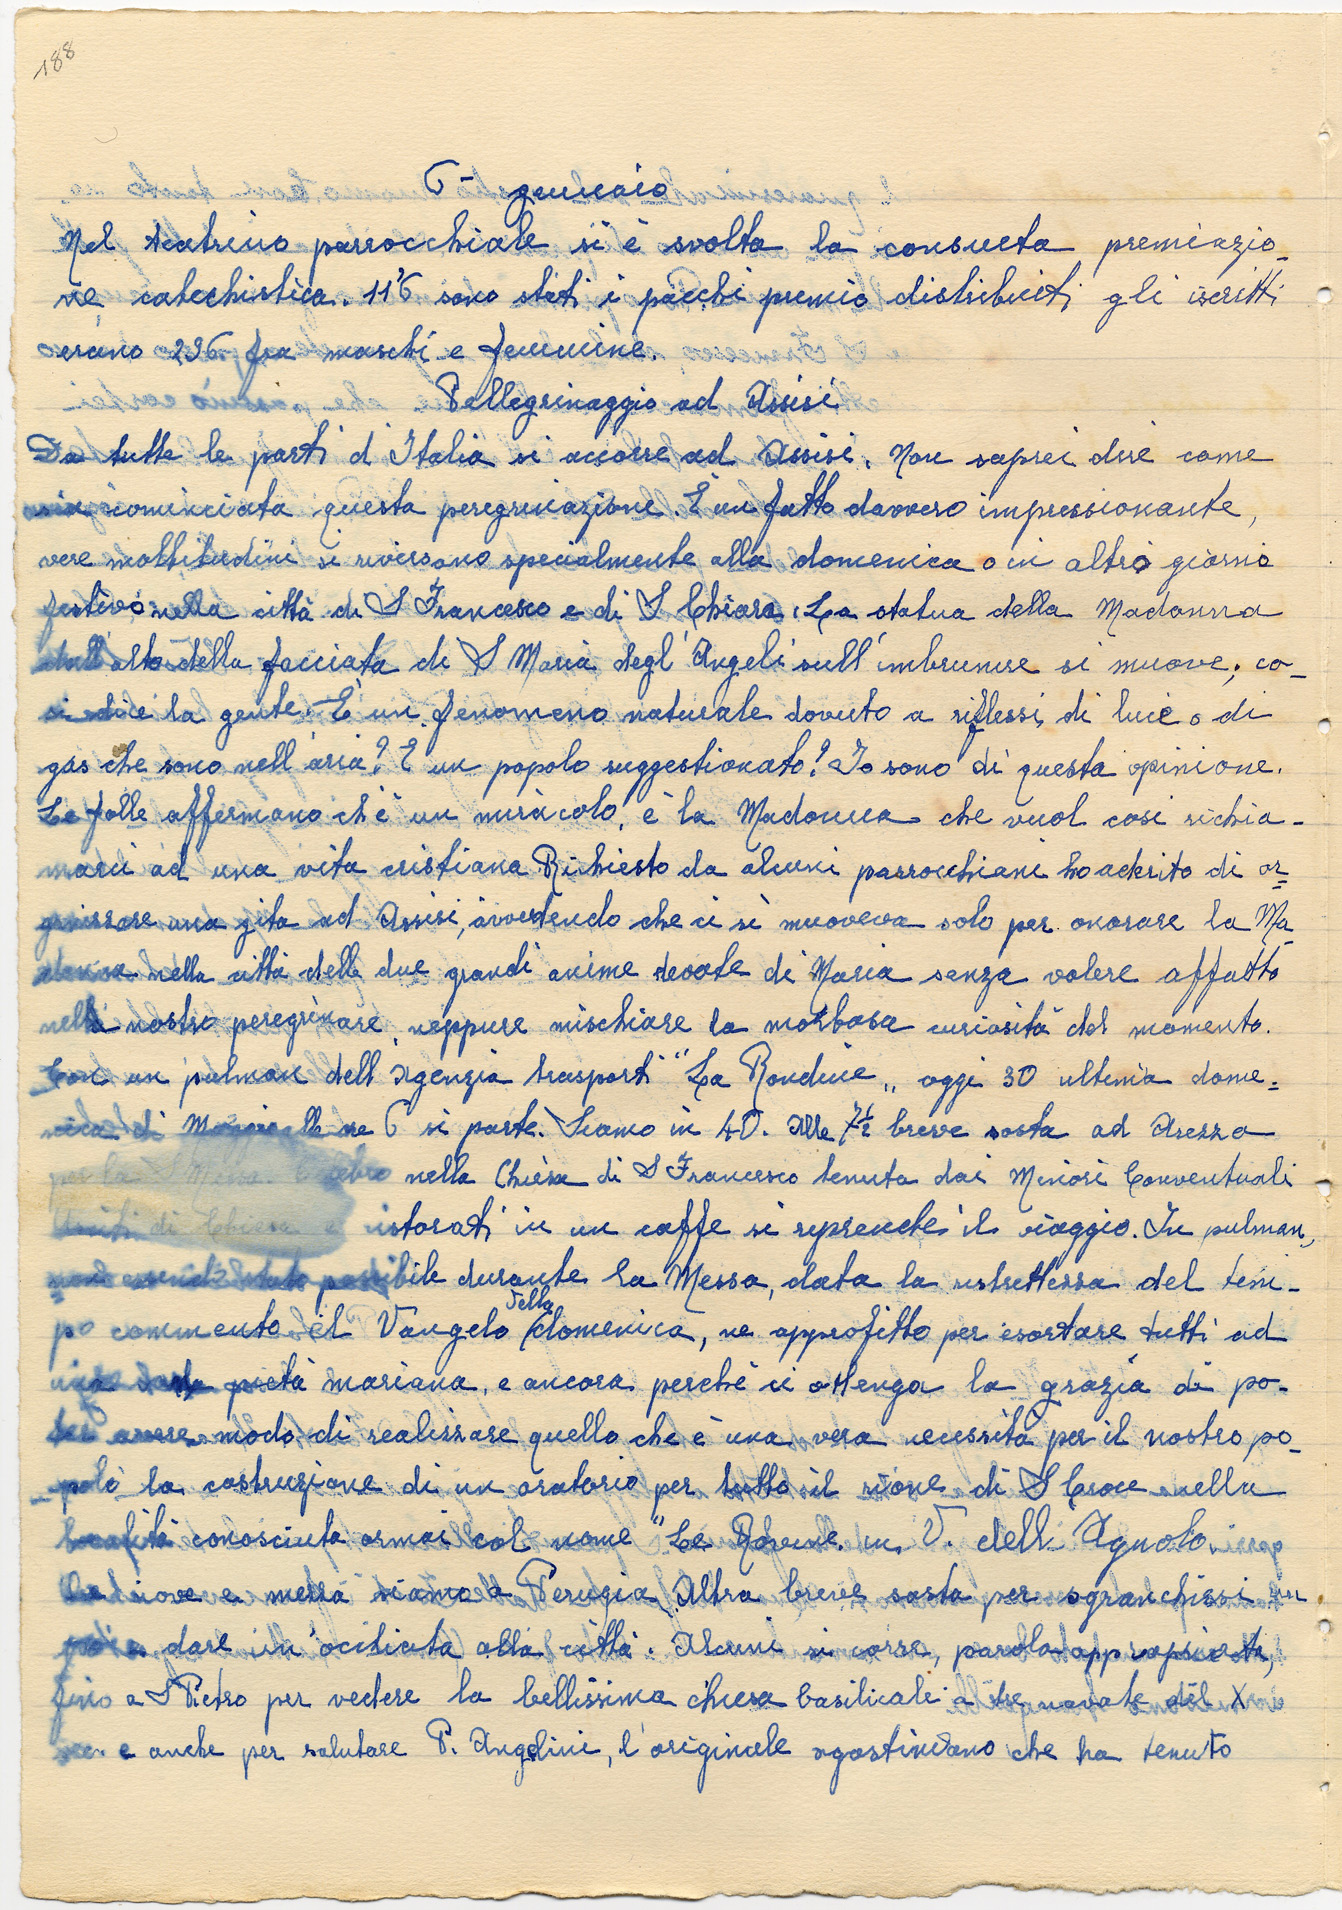 188
6 - gennaio
Nel teatrino parrocchiale si è svolta la consueta premiazio-
ne catechistica. 116 sono stati i pacchi premio distribuiti gli iscritti
erano 236 fra maschi e femmine.
Pellegrinaggio ad Assisi
Da tutte le parti d'Italia si accorre ad Assisi. Non saprei dire come
sia cominciata questa peregrinazione. È un fatto davvero impressionante,
vere moltitudini si riversano specialmente alla domenica o in altro giorno
festivo nella città di S Francesco e di S Chiara. La statua della Madonna
dall'alto della facciata di S Maria degl'Angeli sull'imbrunire si muove; co-
si dice la gente. È un fenomeno naturale dovuto a riflessi di luce o di
gas che sono nell'aria? È un popolo suggestionato? Io sono di questa opinione.
Le folle affermano ch'è un miracolo, è la Madonna che vuol così richia-
marci ad una vita cristiana Richiesto da alcuni parrocchiani ho aderito di or=
ganizzare una gita ad Assisi, avvertendo che ci si muoveva solo per onorare la Ma=
donna nella città delle due grandi anime devote di Maria senza volere affatto
nella nostro peregrinare, neppure mischiare la morbosa curiosità del momento.
Con un pulman dell'Agenzia trasporti "La Rondine" oggi 30 ultima dome=
nica di Maggio alle ore 6 si parte. Siamo in 40. Alle 7½ breve sosta ad Arezzo
per la S Messa. Celebro nella Chiesa di S Francesco tenuta dai Minori Conventuali
Usciti di Chiesa e ristorati in un caffe si riprende il viaggio. In pulman,
non essendo stato possibile durante la Messa, data la ristrettezza del tem-
po commento il Vangelo della domenica, ne approfitto per esortare tutti ad
una pietà mariana, e ancora perchè ci ottenga la grazia di po-
ter avere modo di realizzare quello che è una vera necessità per il nostro po-
polo la costruzione di un oratorio per tutto il rione di S Croce nella
località conosciuta ormai col nome "Le Rovine" in V. dell'Agnolo.
Alle nove e mezza siamo a Perugia. Altra breve sosta per sgranchirsi un
po' e dare un'occhiata alla città. Alcuni si corre, parola appropriata,
fino a S Pietro per vedere la bellissima chiesa basilicale a tre navate del X
sec. e anche per salutare P. Angelini, l'originale agostiniano che ha tenuto